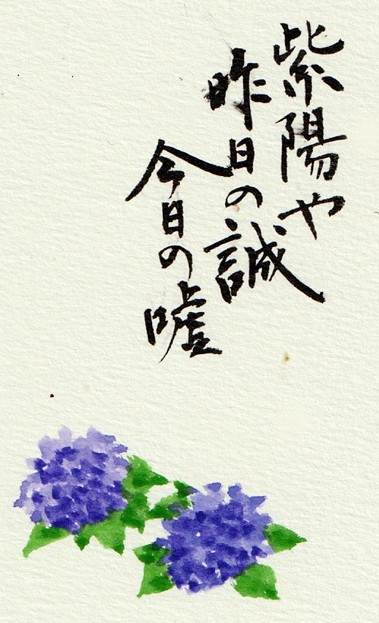 紫陽や
昨日の誠
今日の嘘